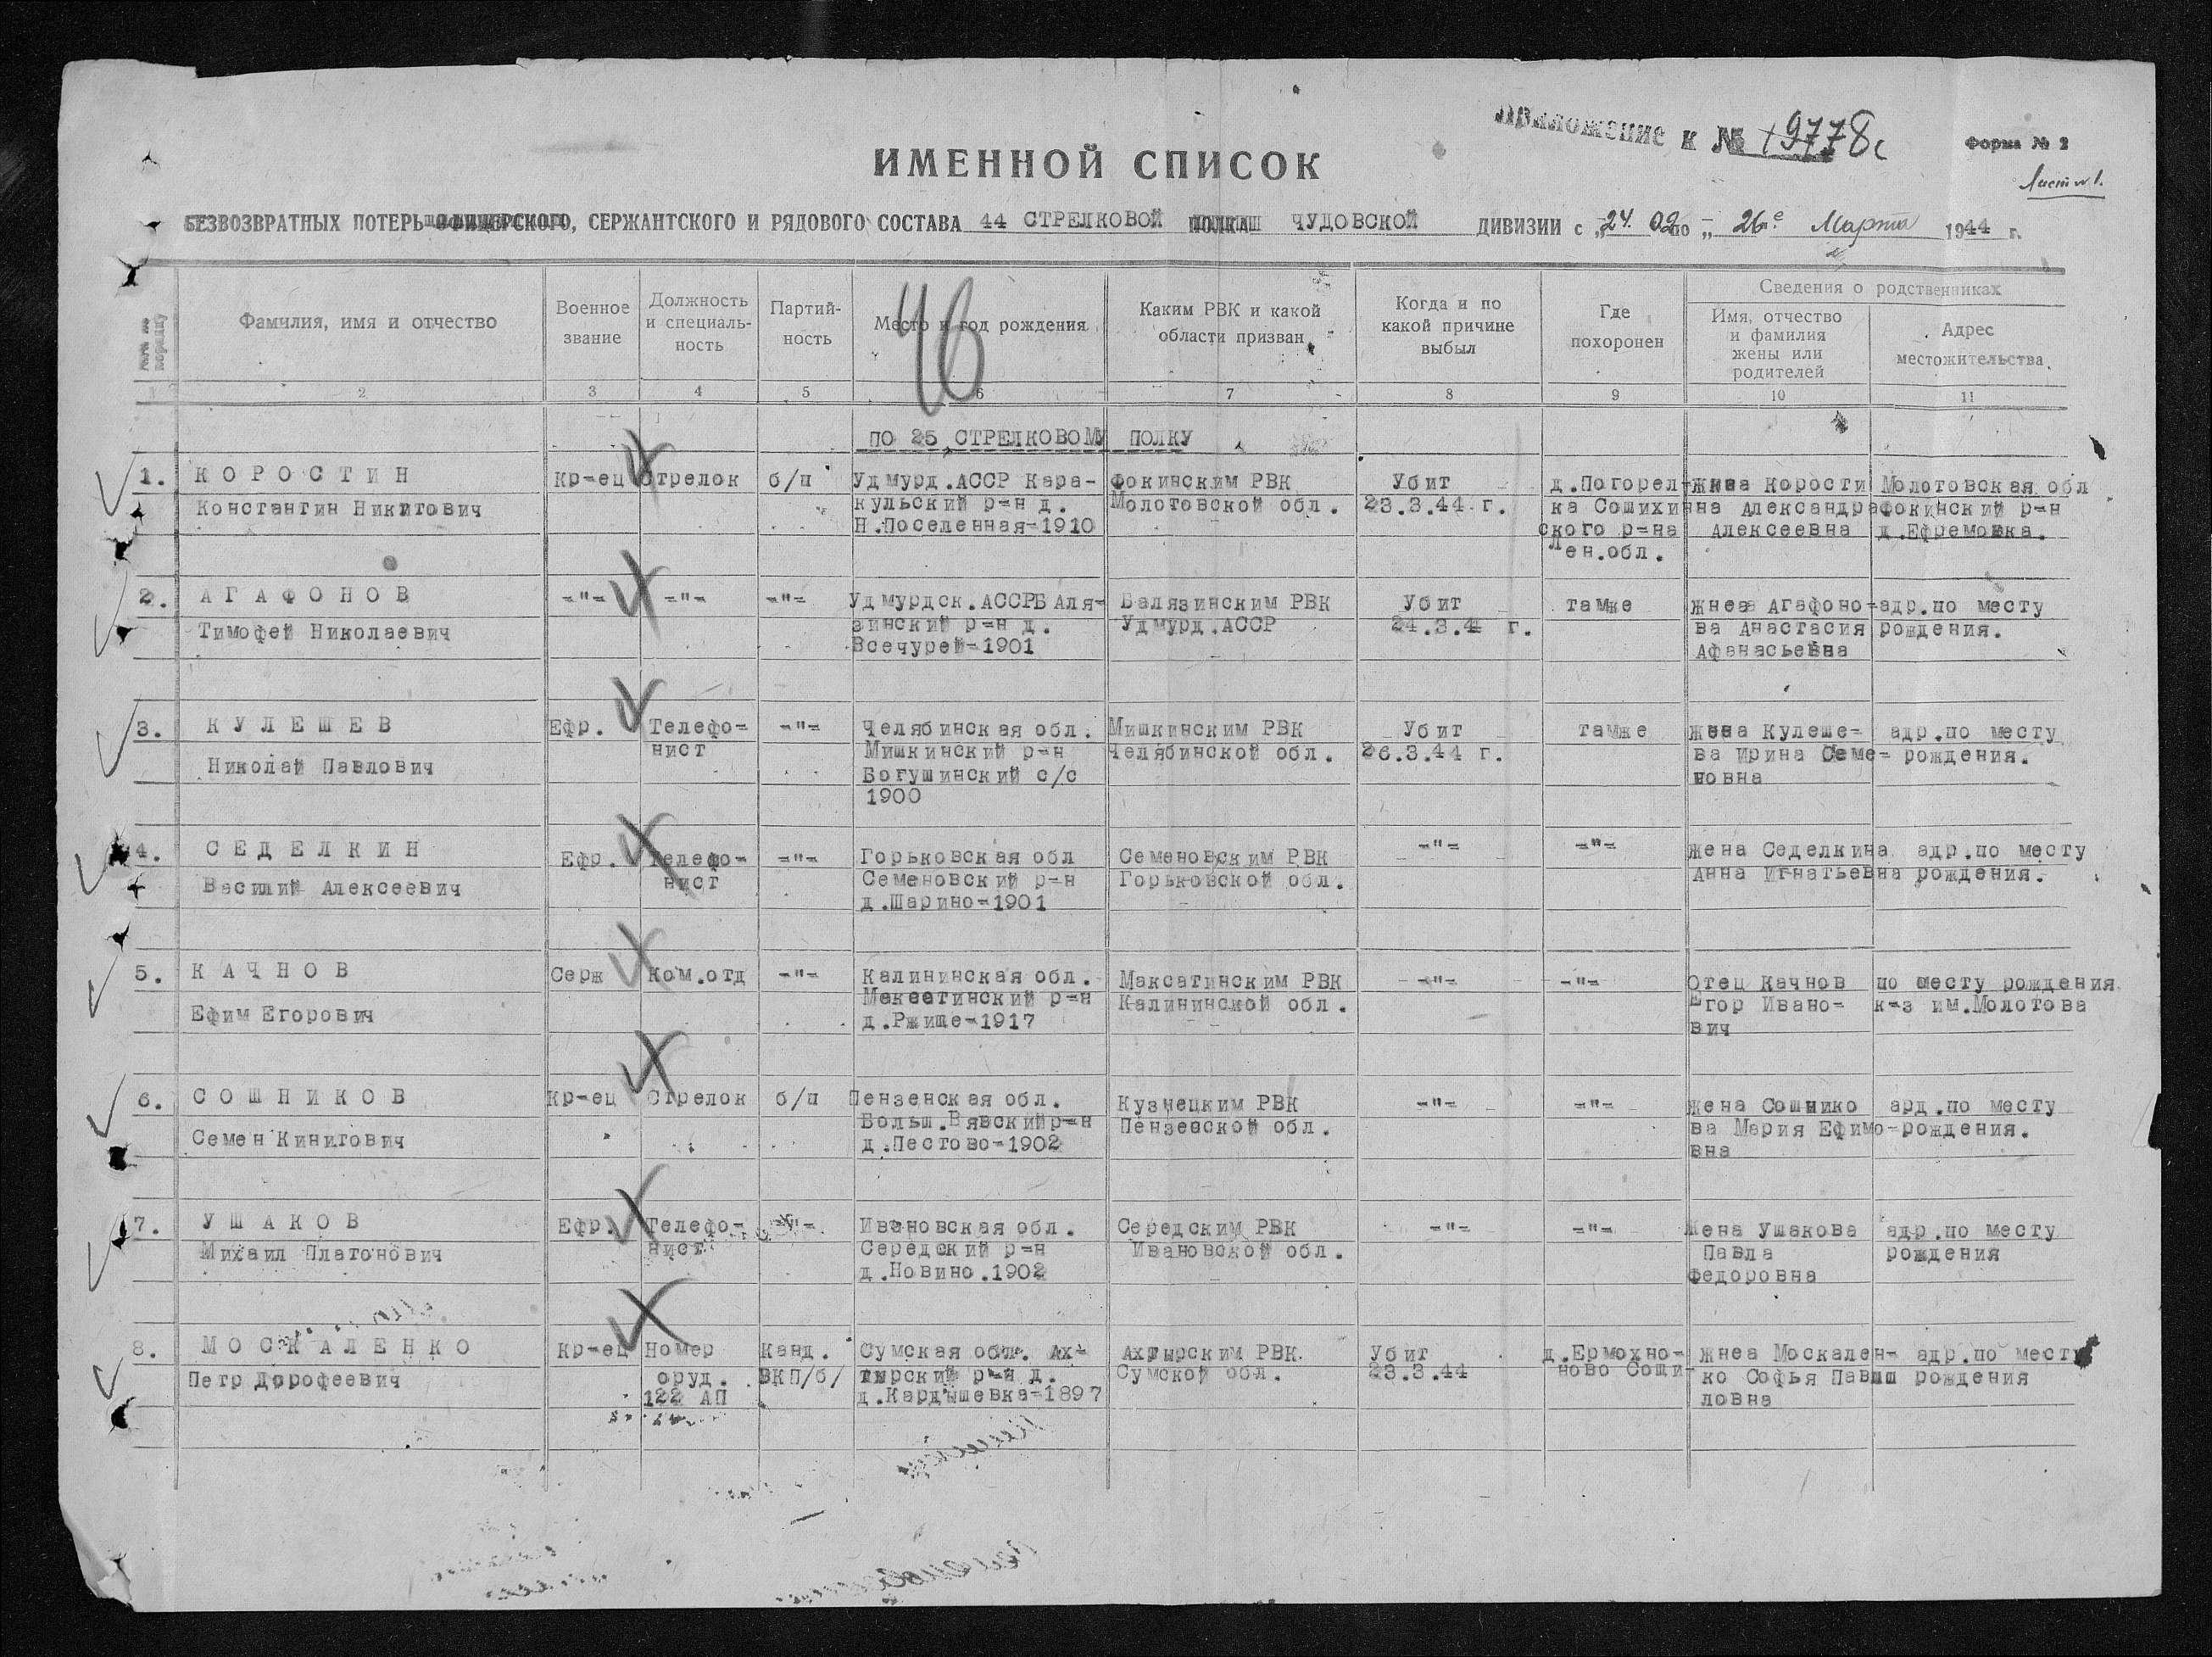 Приложение к № 19778с
Форма № 2
Лист № 1.
ИМЕННОЙ СПИСОК
БЕЗВОЗВРАТНЫХ ПОТЕРЬ ОФИЦЕРСКОГО, СЕРЖАНТСКОГО И РЯДОВОГО СОСТАВА 44 СТРЕЛКОВОЙ ПОЛКА ЧУДОВСКОЙ ДИВИЗИИ с „24. 02 по „ 26 Марта 1944 г.
46
Фамилия, имя и отчество
Военное
звание
Должность
и специаль-
ность
Партий-
ность
Место и год рождения
Каким РВК и какой
области призван
Когда и по
какой причине
выбыл
Где
похоронен
Сведения о родственниках
Имя, отчество
и фамилия
жены или
родителей
Адрес
местожительства
1 2 3 4 5 6 7 8 9 10 11
ПО 25 СТРЕЛКОВОМУ ПОЛКУ
1. КОРОСТИН
Константин Никитович
Кр-ец
Стрелок
б/п
Удмурд.АССР Кара-
кульский р-н д.
Н.Поселенная-1910
Фокинским РВК
Молотовской обл.
Убит
23.3.44 г.
д.Погорел-
ка Сошихин
ского р-на
Лен.обл.
Корости
на Александра
Алексеевна
Молотовская обл
фокинский р-н
д.Ефремовка.
2. АГАФОНОВ
Тимофей Николаевич
-"-
-"-
-"-
Удмурдск.АССРБаля-
зинский р-н д.
Всечурей-1901
Балязинским РВК
Удмурд.АССР
Убит
24.3.4 г.
тамже
Агафоно-
ва Анастасия
Афанасьевна
адр.по месту
рождения.
3. КУЛЕШЕВ
Николай Павлович
Ефр.
Телефо-
нист
-"-
Челябинская обл.
Мишкинский р-н
Богушинский с/с
1900
Мишкинским РВК
Челябинской обл.
Убит
26.3.44 г.
тамже
Жена Кулеше-
ва Ирина Семе-
новна
адр.по месту
рождения.
4. СЕДЕЛКИН
Василий Алексеевич
Ефр.
Телефо-
нист
-"-
Горьковская обл
Семеновский р-н
д.Шарино-1901
Семеновским РВК
Горьковской обл.
-"-
-"-
Жена Седелкина
Анна Игнатьевна
адр.по месту
рождения.
5. КАЧНОВ
Ефим Егорович
Серж
Ком.отд
-"-
Калининская обл.
р-н
д.Ржище-1917
Максатинским РВК
Калининской обл.
-"-
-"-
Отец Качнов
Егор Ивано-
вич
по месту рождения
к-з им.Молотова
6. СОШНИКОВ
Семен Кинитович
Кр-ец
Стрелок
б/п
Пензенская обл.
Больш.Вявскийр-н
д.Пестово-1902
Кузнецким РВК
Пензенской обл.
-"-
-"-
Жена Сошнико
ва Мария Ефимо-
вна
ард.по месту
рождения.
7. УШАКОВ
Михаил Платонович
Ефр.
Телефо-
нист
-"-
Ивановская обл.
Середский р-н
д.Новино.1902
Середским РВК
Ивановской обл.
-"-
-"-
Жена Ушакова
Павла
Федоровна
адр.по месту
рождения
8. МОСКАЛЕНКО
Петр Дорофеевич
Кр-ец
Номер
оруд.
122 АП
Канд.
ВКП/б/
Сумская обл. Ах-
тырский р-н д.
д.Кардышевка-1897
Ахтырским РВК
Сумской обл.
Убит
23.3.44
д.Ермохно-
ново Соши-
Жнеа Москален-
ко Софья Павшш
ловна
адр.по месту
рождения